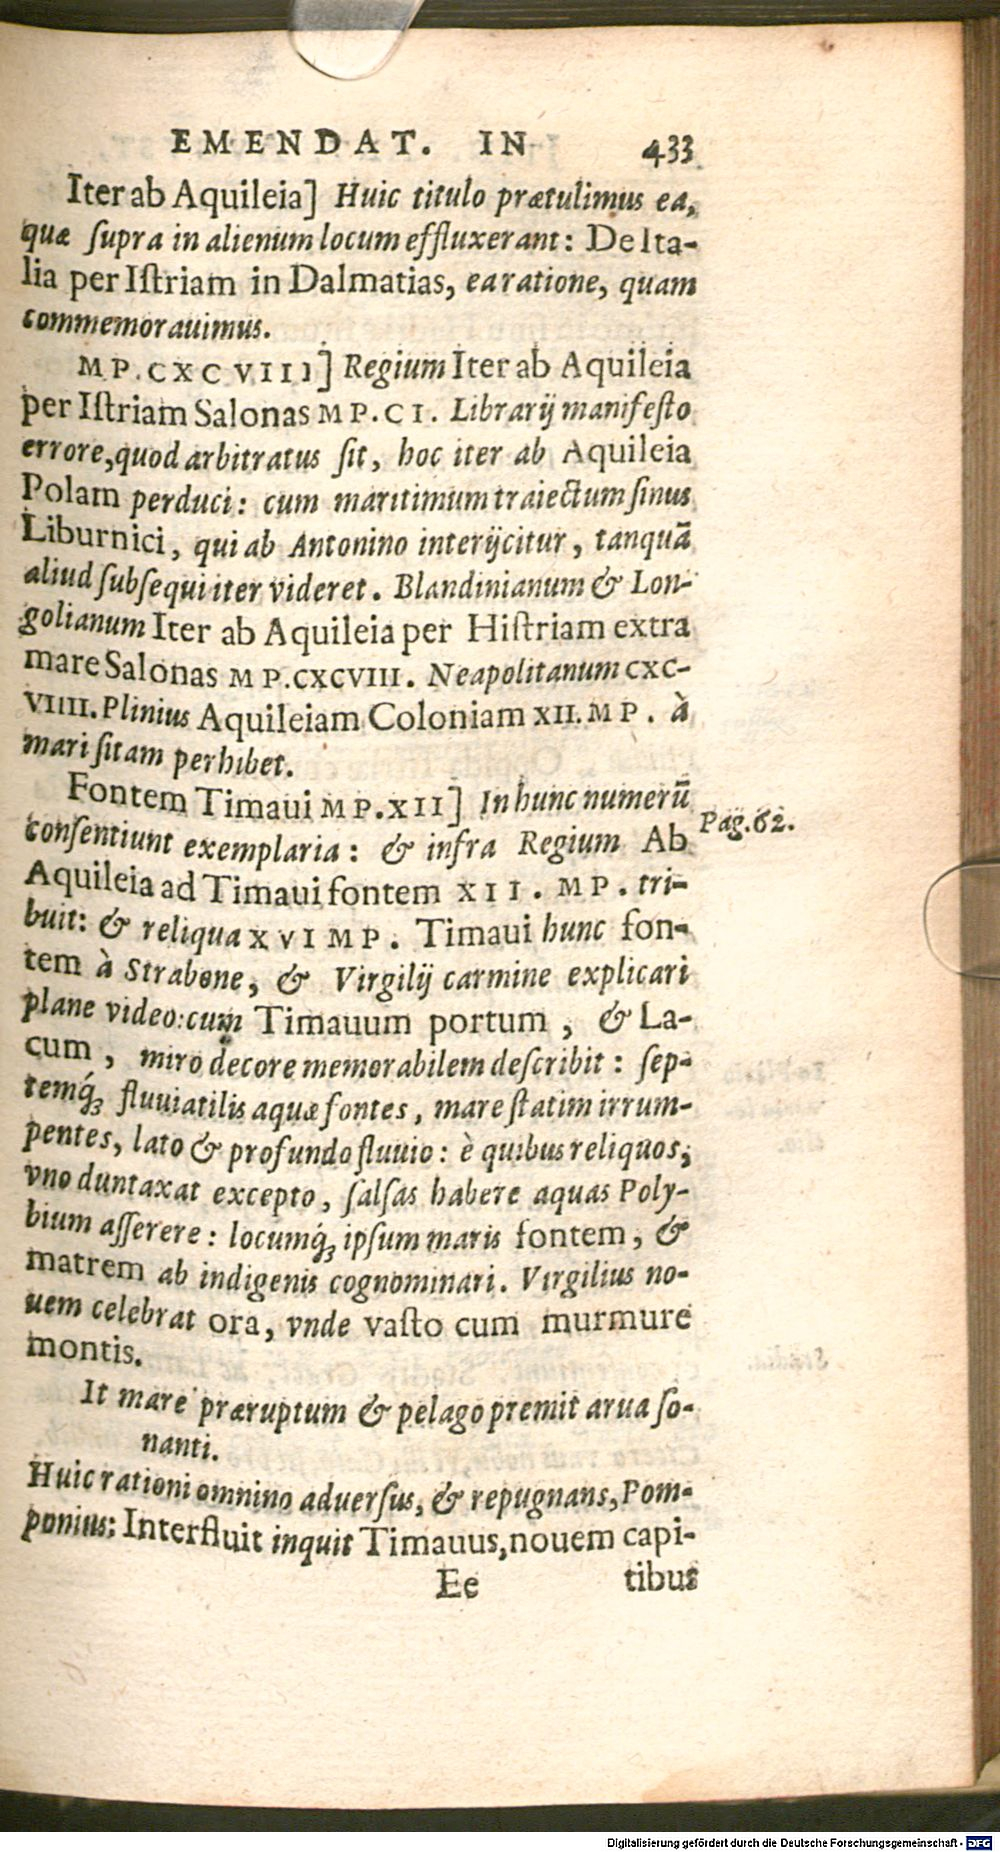 EMENDAT. IN 433
Iter ab Aquileia] Huic titulo prætulimus ea,
quæ ſupra in alienum locum effluxerant: De Ita-
lia per Iſtriam in Dalmatias, ea ratione, quam
commemorauimus.
MP. CXCVIII] Regium Iter ab Aquileia
per Iſtriam Salonas MP. CI. Librarij manifeſto
errore, quod arbitratus ſit, hoc iter ab Aquileia
Polam perduci: cum maritimum traiectum ſinus
Liburnici, qui ab Antonino interijcitur, tanquã
aliud ſubſequi iter videret. Blandinianum & Lon-
golianum Iter ab Aquileia per Hiſtriam extra
mare Salonas MP. CXCVIII. Neapolitanum CXC-
VIIII. Plinius Aquileiam Coloniam XII. MP. à
mari ſitam perhibet.
Fontem Timaui MP. XII] In hunc numerũ
conſentiunt exemplaria: & infra Regium Ab
Pag. 62.
Aquileia ad Timaui fontem XII. MP. tri-
buit: & reliqua XVI MP. Timaui hunc fon-
tem à Strabone, & Virgilij carmine explicari
plane video: cum Timauum portum, & La-
cum, miro decore memorabilem deſcribit: ſep-
temq́; fluuiatilis aquæ fontes, mare ſtatim irrum-
pentes, lato & profundo fluuio: è quibus reliquos,
vno duntaxat excepto, ſalſas habere aquas Poly-
bium aſſerere: locumq́; ipſum maris fontem, &
matrem ab indigenis cognominari. Virgilius no-
uem celebrat ora, vnde vaſto cum murmure
montis.
It mare præruptum & pelago premit arua ſo-
nanti.
Huic rationi omnino aduerſus, & repugnans, Pom-
ponius: Interfluit inquit Timauus, nouem capi-
Ee tibus
Digitalisierung gefördert durch die Deutsche Forschungsgemeinschaft - DFG